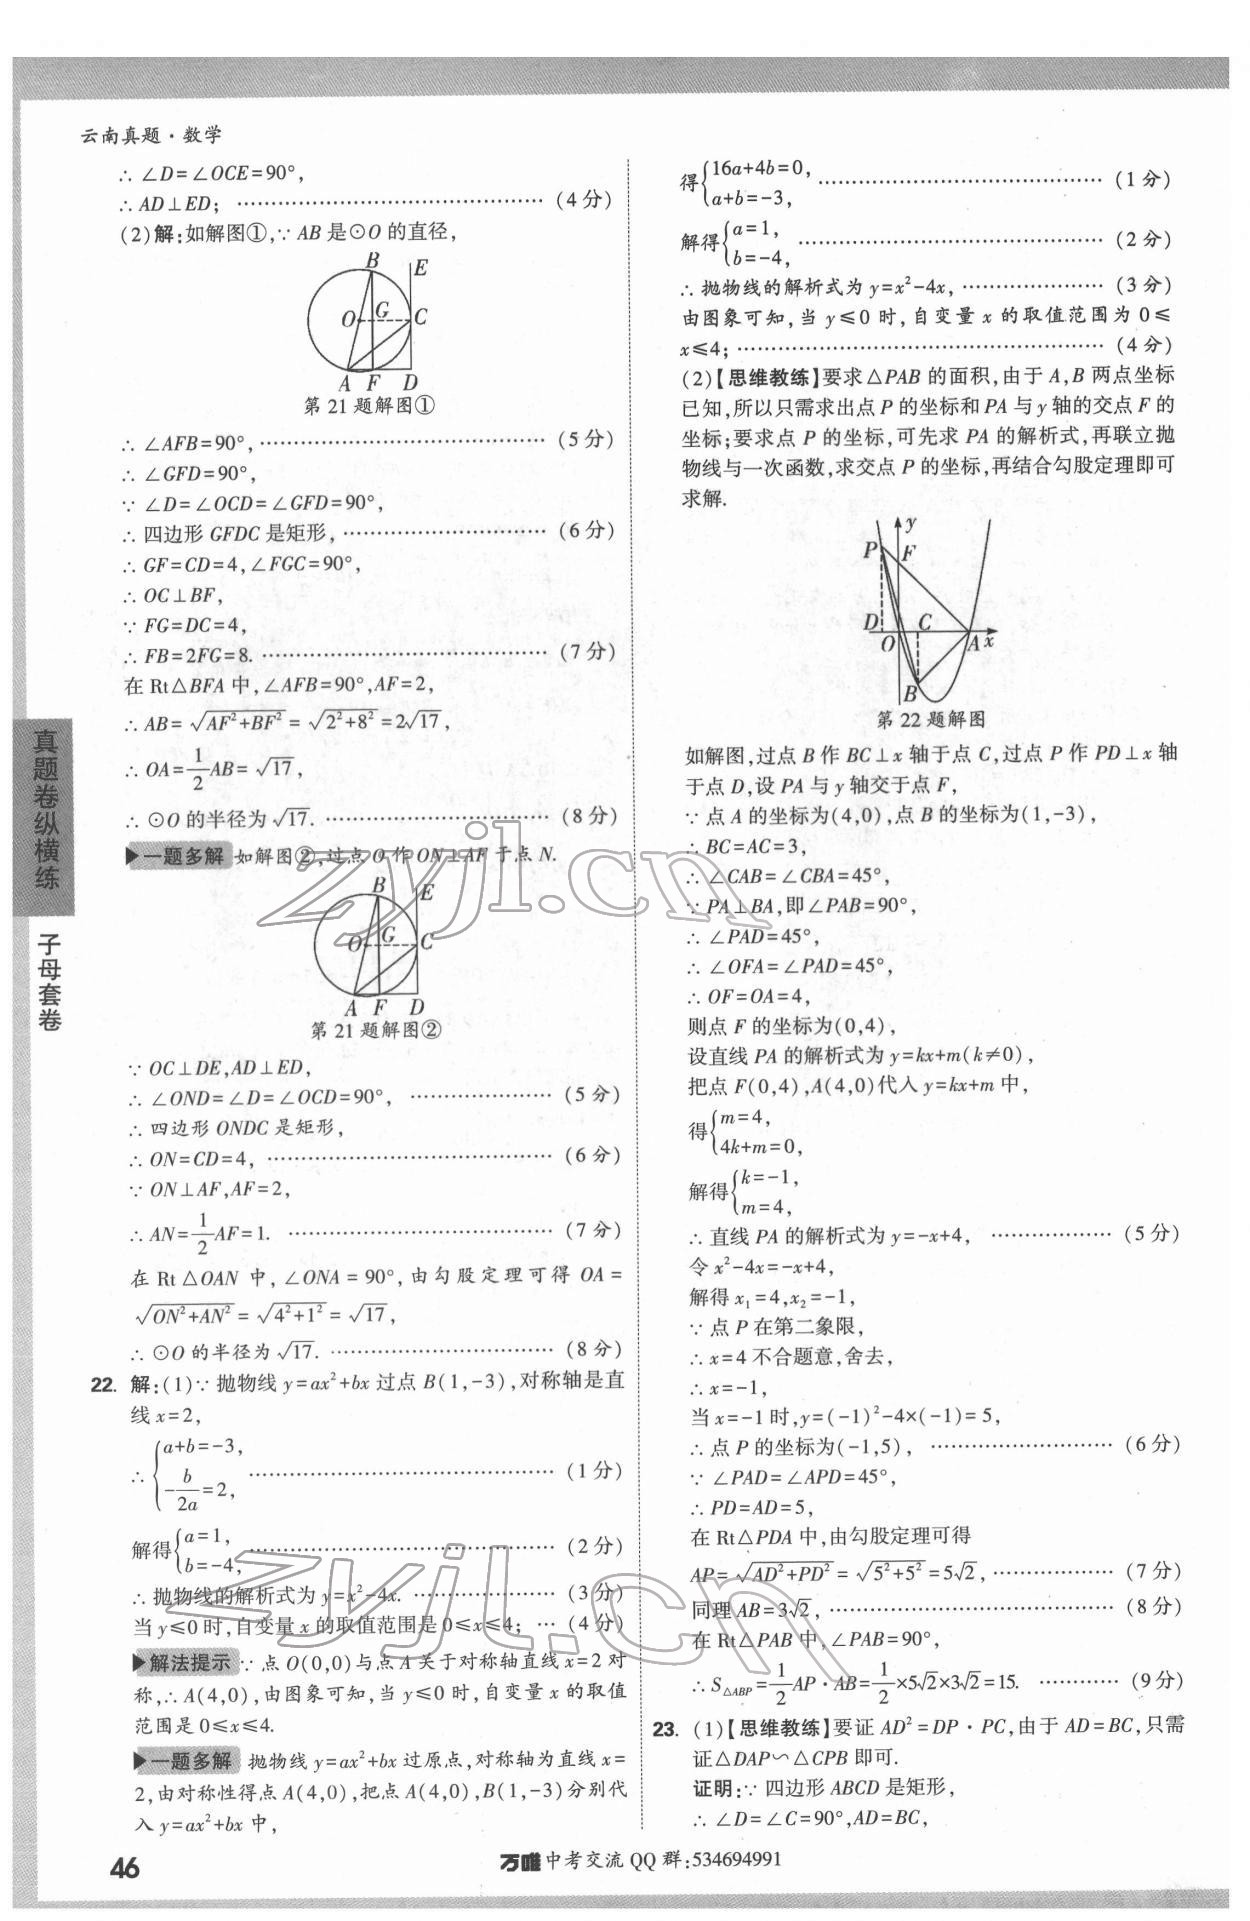 云南真题·数学
∴ ∠D=∠OCE=90°,
∴ AD⊥ED; (4分)
(2)解:如解图①,∵ AB是⊙O的直径,
B
E
O
G
C
A F D
第21题解图①
∴ ∠AFB=90°, (5分)
∴ ∠GFD=90°,
∵ ∠D=∠OCD=∠GFD=90°,
∴ 四边形GFDC是矩形, (6分)
∴ GF=CD=4,∠FGC=90°,
∴ OC⊥BF,
∵ FG=DC=4,
∴ FB=2FG=8. (7分)
在Rt△BFA中,∠AFB=90°,AF=2,
∴ AB=√(AF²+BF²)=√(2²+8²)=2√17,
∴ OA=1/2AB=√17,
∴ ⊙O的半径为√17. (8分)
▶一题多解 如解图②,过点O作ON⊥AF于点N.
B
E
O
G
C
A F D
第21题解图②
∵ OC⊥DE,AD⊥ED,
∴ ∠OND=∠D=∠OCD=90°, (5分)
∴ 四边形ONDC是矩形,
∴ ON=CD=4, (6分)
∵ ON⊥AF,AF=2,
∴ AN=1/2AF=1. (7分)
在Rt△OAN中,∠ONA=90°,由勾股定理可得OA=
√(ON²+AN²)=√(4²+1²)=√17,
∴ ⊙O的半径为√17. (8分)
22. 解:(1)∵ 抛物线y=ax²+bx过点B(1,-3),对称轴是直
线x=2,
∴ {a+b=-3,
-b/2a=2, (1分)
解得{a=1,
b=-4, (2分)
∴ 抛物线的解析式为y=x²-4x. (3分)
当y≤0时,自变量x的取值范围是0≤x≤4; (4分)
▶解法提示 ∵ 点O(0,0)与点A关于对称轴直线x=2对
称,∴ A(4,0),由图象可知,当y≤0时,自变量x的取值
范围是0≤x≤4.
▶一题多解 抛物线y=ax²+bx过原点,对称轴为直线x=
2,由对称性得点A(4,0),把点A(4,0),B(1,-3)分别代
入y=ax²+bx中,
得{16a+4b=0,
a+b=-3, (1分)
解得{a=1,
b=-4, (2分)
∴ 抛物线的解析式为y=x²-4x, (3分)
由图象可知,当y≤0时,自变量x的取值范围为0≤
x≤4; (4分)
(2)【思维教练】要求△PAB的面积,由于A,B两点坐标
已知,所以只需求出点P的坐标和PA与y轴的交点F的
坐标;要求点P的坐标,可先求PA的解析式,再联立抛
物线与一次函数,求交点P的坐标,再结合勾股定理即可
求解.
y
P F
D C
O A x
B
第22题解图
如解图,过点B作BC⊥x轴于点C,过点P作PD⊥x轴
于点D,设PA与y轴交于点F,
∵ 点A的坐标为(4,0),点B的坐标为(1,-3),
∴ BC=AC=3,
∴ ∠CAB=∠CBA=45°,
∵ PA⊥BA,即∠PAB=90°,
∴ ∠PAD=45°,
∴ ∠OFA=∠PAD=45°,
∴ OF=OA=4,
则点F的坐标为(0,4),
设直线PA的解析式为y=kx+m(k≠0),
把点F(0,4),A(4,0)代入y=kx+m中,
得{m=4,
4k+m=0,
解得{k=-1,
m=4,
∴ 直线PA的解析式为y=-x+4, (5分)
令x²-4x=-x+4,
解得x₁=4,x₂=-1,
∵ 点P在第二象限,
∴ x=4不合题意,舍去,
∴ x=-1,
当x=-1时,y=(-1)²-4×(-1)=5,
∴ 点P的坐标为(-1,5), (6分)
∵ ∠PAD=∠APD=45°,
∴ PD=AD=5,
在Rt△PDA中,由勾股定理可得
AP=√(AD²+PD²)=√(5²+5²)=5√2, (7分)
同理AB=3√2, (8分)
在Rt△PAB中,∠PAB=90°,
∴ S△ABP=1/2AP·AB=1/2×5√2×3√2=15. (9分)
23. (1)【思维教练】要证AD²=DP·PC,由于AD=BC,只需
证△DAP∽△CPB即可.
证明:∵ 四边形ABCD是矩形,
∴ ∠D=∠C=90°,AD=BC,
真题卷纵横练
子母套卷
46
万唯中考交流QQ群:534694991
zyjl.cn
zyjl.cn